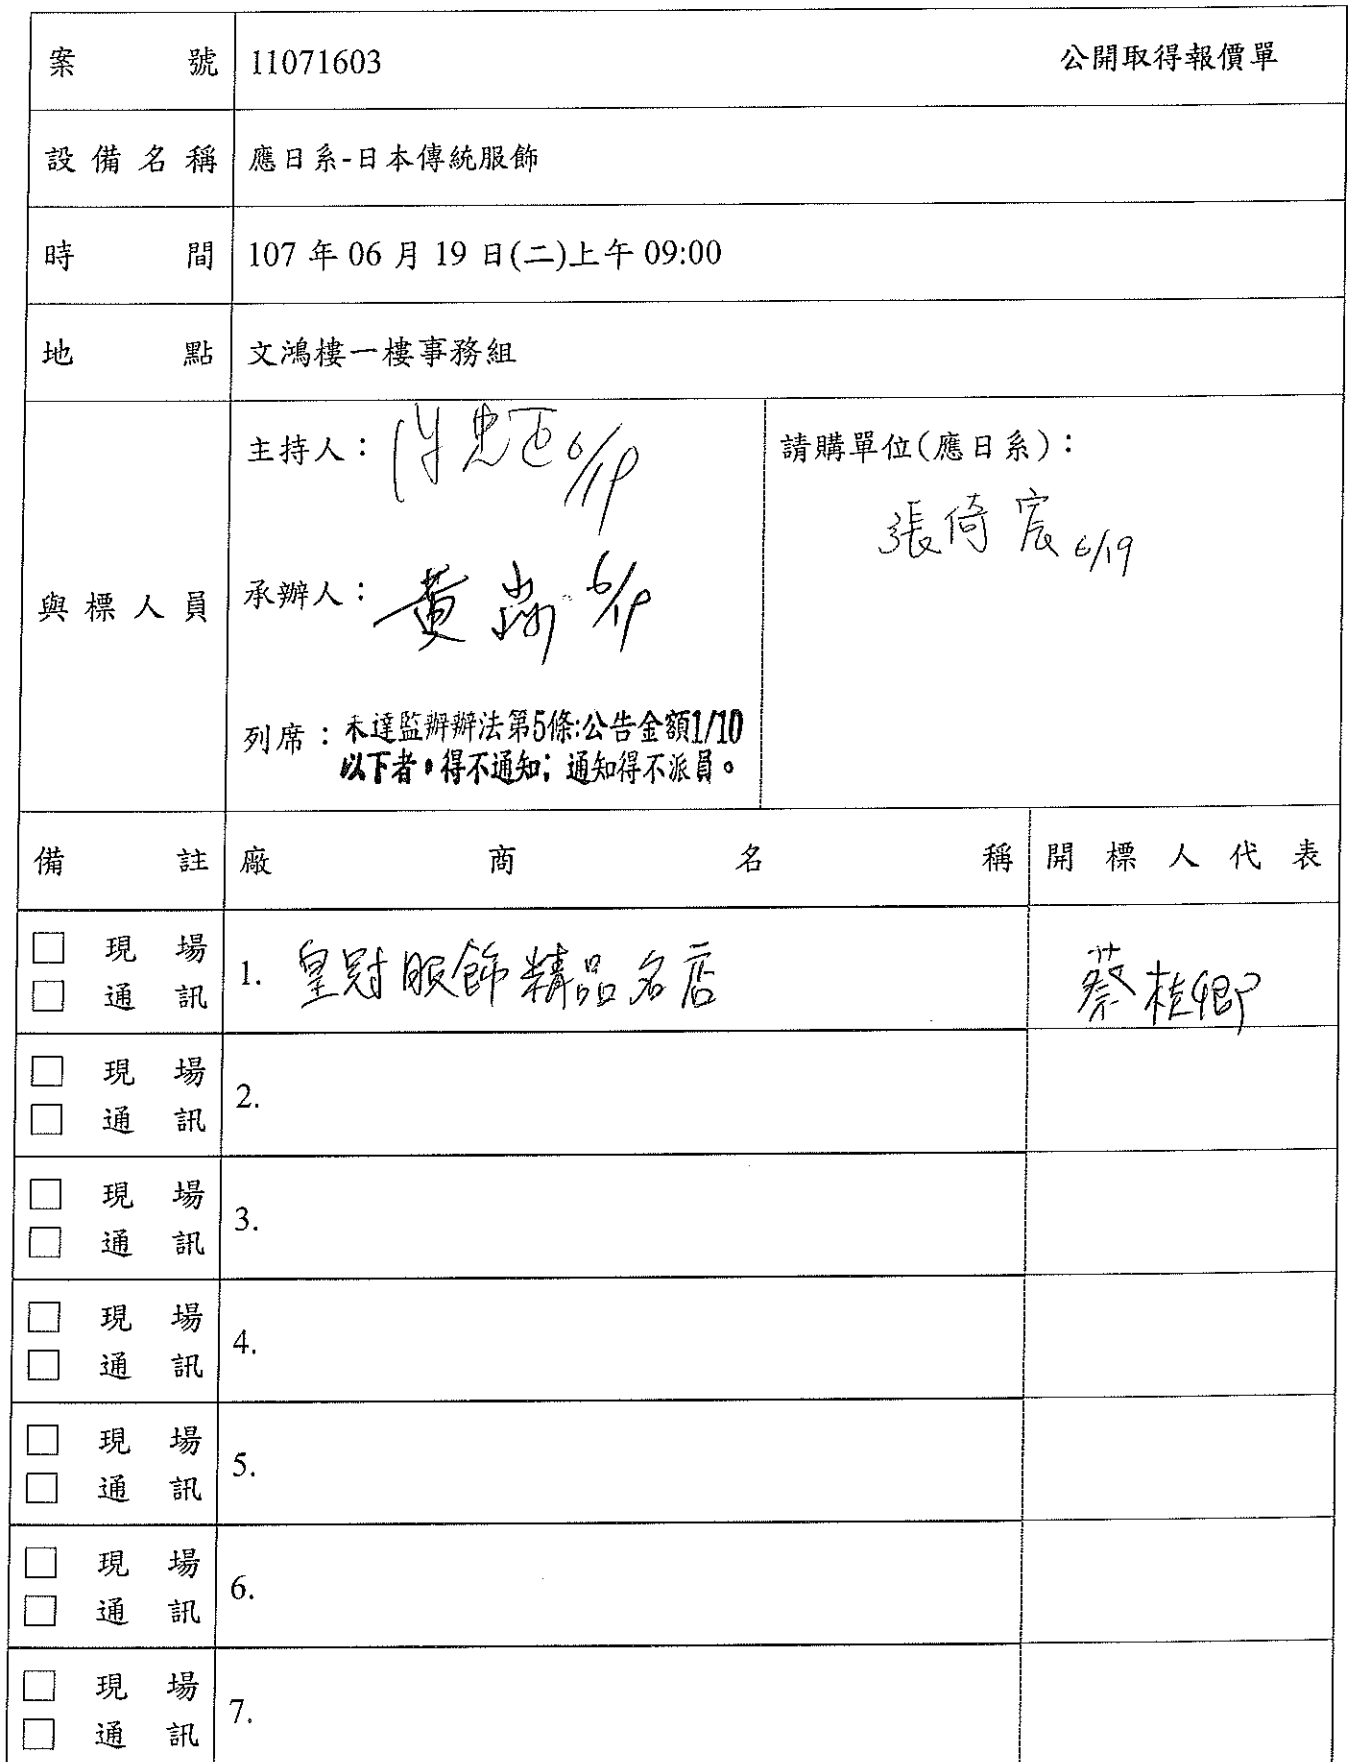 案號 11071603 公開取得報價單
設備名稱 應日系-日本傳統服飾
時間 107 年 06 月 19 日(二)上午 09:00
地點 文鴻樓一樓事務組
與標人員
主持人： 6/19
請購單位(應日系)：
張倚宸 6/19
承辦人： 黃 6/19
列席：未達監辦辦法第5條:公告金額1/10
以下者，得不通知；通知得不派員。
備註 廠商名稱 開標人代表
□ 現場
□ 通訊
1. 皇冠服飾精品名店 蔡桂卿
□ 現場
□ 通訊
2.
□ 現場
□ 通訊
3.
□ 現場
□ 通訊
4.
□ 現場
□ 通訊
5.
□ 現場
□ 通訊
6.
□ 現場
□ 通訊
7.